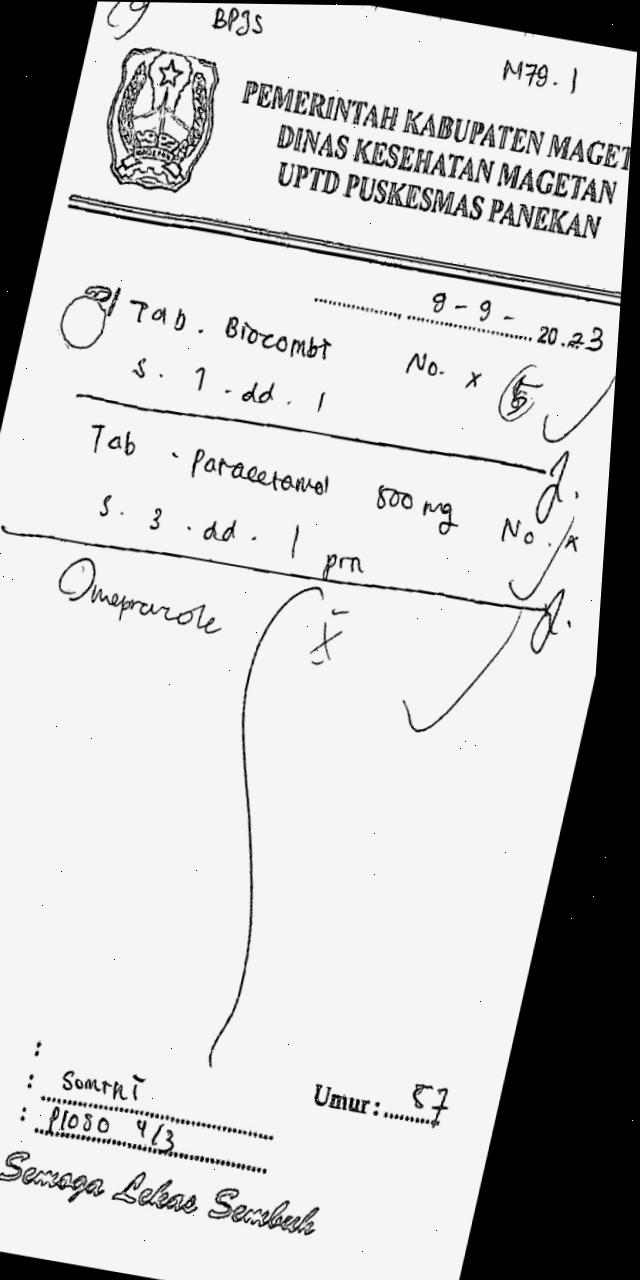 BPJS
M79.1
PEMERINTAH KABUPATEN MAGET
DINAS KESEHATAN MAGETAN
UPTD PUSKESMAS PANEKAN
9 - 9 - 2023
Tab. Biocombi No. X
S. 1 . dd . 1
Tab . Paracetamol 500 mg No. X
S. 3 . dd . 1 prn
Omeprazole X
: 
: Somtni
: Ploso 4/3
Umur : 57
Semoga Lekas Sembuh